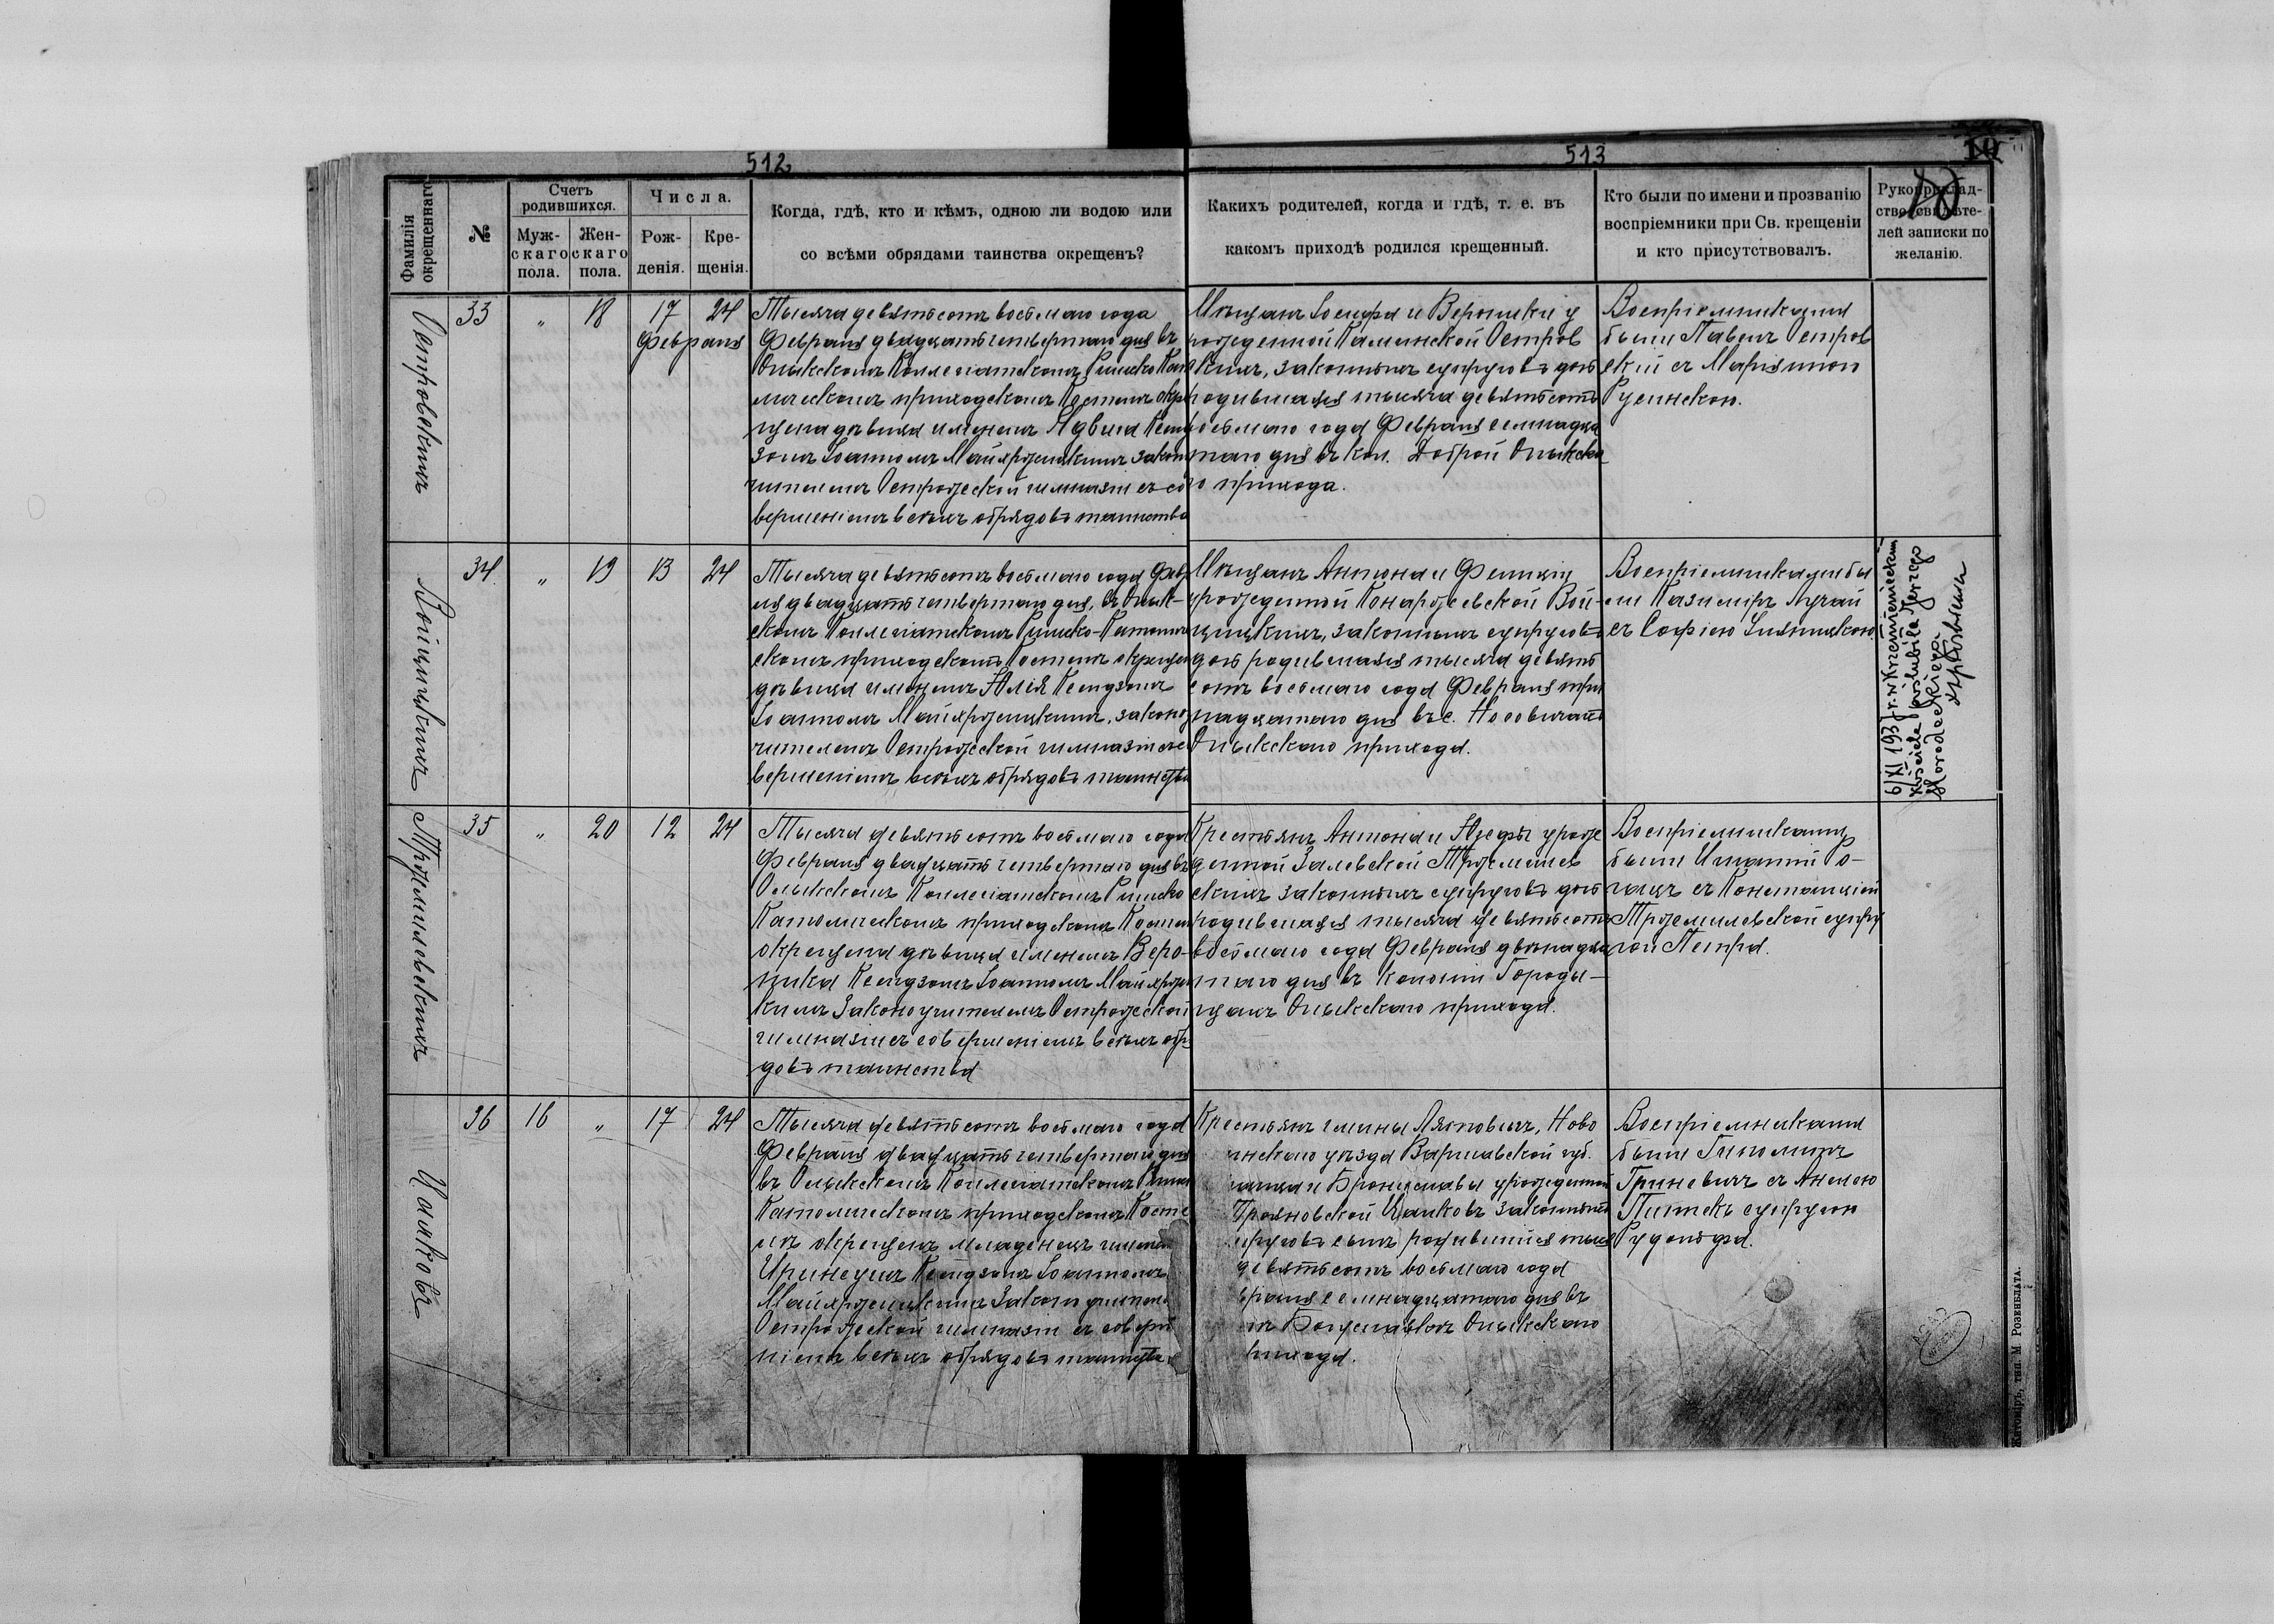 512
513
10
Фамилія окрещеннаго
№
Счетъ родившихся.
Мужскаго пола.
Женскаго пола.
Числа.
Рожденія.
Крещенія.
Когда, гдѣ, кто и кѣмъ, одною ли водою или
со всѣми обрядами таинства окрещенъ?
Какихъ родителей, когда и гдѣ, т. е. въ
какомъ приходѣ родился крещенный.
Кто были по имени и прозванію
воспріемники при Св. крещеніи
и кто присутствовалъ.
Рукоприклад-
ство свидѣте-
лей записки по
желанію.
Островскихъ
33
"
18
17
24
Февраля
Тысяча девятьсотъ восьмаго года
Февраля двадцать четвертаго дня въ
Олыкскомъ Коллегіатскомъ Римско Кат
лическомъ приходскомъ Костелѣ окре
щена дѣвица именемъ Ядвига Ксенд
зомъ Іоанномъ Майхржицкимъ закон
чителемъ Острожской гимназіи съ со
вершеніемъ всѣхъ обрядовъ таинства
Мѣщанъ Іосифа и Вероники у
рожденной Калинской Остров
скихъ, законныхъ супруговъ дочь
родившаяся тысяча девятьсотъ
восьмаго года Февраля семнадца
таго дня въ кол. Доброй Олыкска
го прихода.
Воспріемниками
были Павелъ Остров
скій съ Маріянною
Русинскою.
Войцицкихъ
34
"
19
13
24
Тысяча девятьсотъ восьмаго года Фев
ля двадцать четвертаго дня, въ Олык-
скомъ Коллегіатскомъ Римско-Католич
скомъ приходскомъ Костелѣ окрещена
дѣвица именемъ Юлія Ксендзомъ
Іоанномъ Майхржицкимъ, законо
чителемъ Острожской гимназіи со
вершеніемъ всѣхъ обрядовъ таинства
Мѣщанъ Антона и Фелиціи
урожденной Конаржевской Вой-
цицкихъ, законныхъ супруговъ
дочь родившаяся тысяча девять
сотъ восьмаго года Февраля три
надцатаго дня въ с. Носовичахъ
Олыкскаго прихода.
Воспріемниками бы
ли Казиміръ Лучай
съ Софіею
6/XI 193 r. w Krzemienieckim
kościele poślubiła Jerzego
Horodeckiego
Тржемилевскихъ
35
"
20
12
24
Тысяча девятьсотъ восьмаго года
Февраля двадцать четвертаго дня въ
Олыкскомъ Коллегіатскомъ Римско
Католическомъ приходскомъ Костел
окрещена дѣвица именемъ Веро-
ника Ксендзомъ Іоанномъ Майхржи
кимъ Законоучителемъ Острожской
гимназіи съ совершеніемъ всѣхъ обр
довъ таинства
Крестьянъ Антона и Юзефы урож
денной Залевской Тржемилев
скихъ законныхъ супруговъ дочь
родившаяся тысяча девятьсотъ
восьмаго года Февраля двѣнадца
таго дня въ колоніи Городы-
щахъ Олыкскаго прихода.
Воспріемниками
были Игнатій Ро-
гацъ съ Констанціей
Тржемилевской супру
гой Петра.
Цалковъ
36
16
"
17
24
Тысяча девятьсотъ восьмаго года
Февраля двадцать четвертаго дня
въ Олыкскомъ Коллегіатскомъ Римск
Католическомъ приходскомъ Косте
лѣ окрещенъ младенецъ имене
Ириней Ксендзомъ Іоанномъ
Майхржицкимъ Законоучител
Острожской гимназіи съ соверш
ніемъ всѣхъ обрядовъ таинства
Крестьянъ гмины Ново
минскаго уѣзда Варшавской губ.
и Брониславы урожденной
Цалковъ законныхъ
пруговъ сынъ родившійся тыся
девятьсотъ восьмаго года
враля семнадцатаго дня въ
Богуславкѣ Олыкскаго
прихода.
Воспріемниками
были Гиполитъ
Гриневичъ съ Анелею
Піотекъ супругою
Рудольфа.
Житоміръ, тип. М. Розенблата.